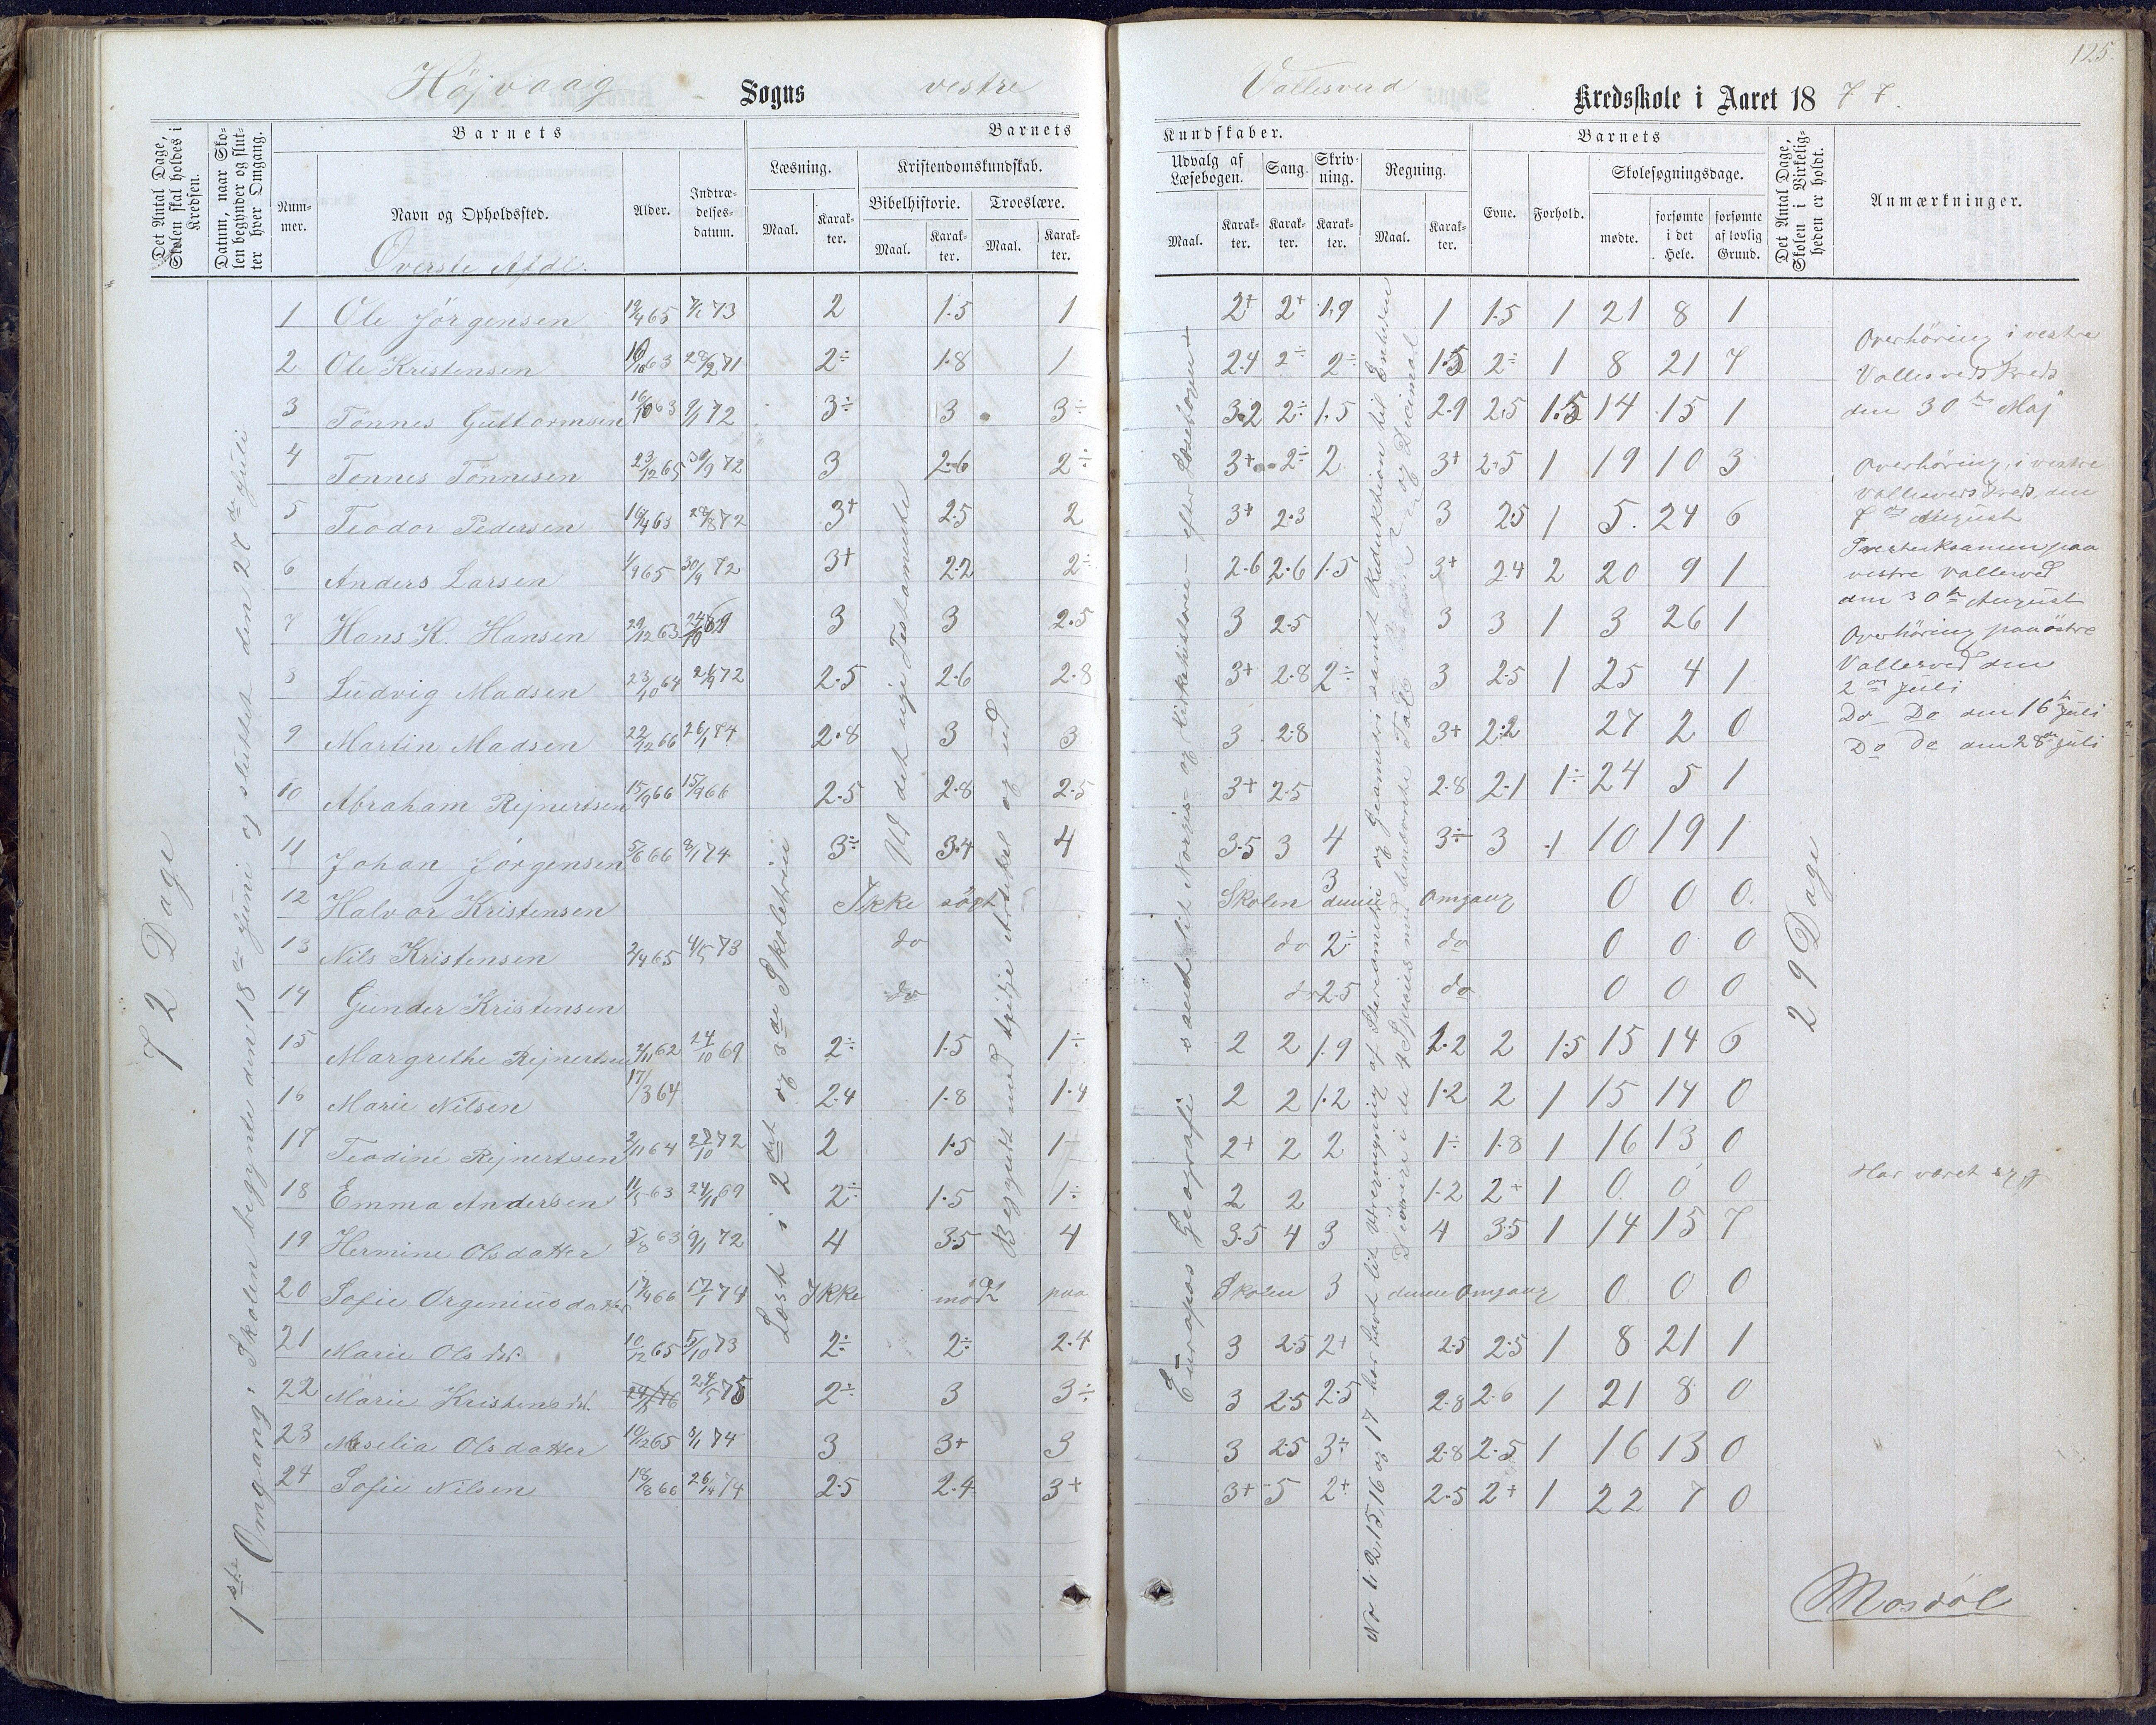 125.
Höjvaag Sogns vestre Vallesverd Kredsskole i Aaret 1877.
Det Antal Dage, Skolen skal holdes i Kredsen.
Datum, naar Skolen begynder og slutter hver Omgang.
Barnets
Nummer.
Navn og Opholdssted.
Alder.
Indtrædelsesdatum.
Barnets
Læsning.
Maal.
Karakter.
Kristendomskundskab.
Bibelhistorie.
Maal.
Karakter.
Troeslære.
Maal.
Karakter.
Kundskaber.
Udvalg af Læsebogen.
Maal.
Karakter.
Sang.
Karakter.
Skrivning.
Karakter.
Regning.
Maal.
Karakter.
Barnets
Evne.
Forhold.
Skolesøgningsdage.
mødte.
forsømte i det Hele.
forsømte af lovlig Grund.
Det Antal Dage, Skolen i Virkeligheden er holdt.
Anmærkninger.
Överste Afdl.
72 Dage
1ste Omgang: Skolen begynte den 18de Juni og sluttet den 27de Juli
Læst i 2det og 3die Skoletrin
Ut det nye Testamente
Begyndt med tredje Artikel og ud
Europas Geografi samt lit Norges- og Kirkehistorie - efter Læsebogen
No 1, 2, 15, 16 og 17 har havt lit
29 Dage
1 Ole Jörgensen 19/4 65 7/1 73 2 1.5 1 2+ 2+ 1,9 1 1.5 1 21 8 1
2 Ole Kristensen 28/2 71 2÷ 1.8 1 2.4 2÷ 2÷ 1.5 2÷ 1 8 21 7
3 Tönnes Guttormsen 16/10 63 9/1 72 3÷ 3 3÷ 3.2 2÷ 1.5 2.9 2.5 1.5 14 15 1
4 Tönnes Tönnesen 23/12 65 72 3 2.6 2÷ 3+ 2÷ 2 3+ 2.5 1 19 10 3
5 Teodor Pedersen 16/4 63 28/8 72 3+ 2.5 2 3+ 2.3 3 2.5 1 5. 24 6
6 Anders Larsen 1/9 65 30/9 72 3+ 2.2 2÷ 2.6 2.6 1.5 3+ 2.4 2 20 9 1
7 Hans K. Hansen 29/12 63 24/10 69 3 3 2.5 3 2.5 3 3 1 3 26 1
8 Ludvig Madsen 23/10 64 72 2.5 2.6 2.8 3+ 2.8 2÷ 3 2.5 1 25 4 1
9 Martin Madsen 22/12 66 26/1 74 2.8 3 3 3 2.8 3+ 2.2 27 2 0
10 Abraham Rejnertsen 15/9 66 15/9 66 2.5 2.8 2.5 3+ 2.5 2.8 2.1 1÷ 24 5 1
11 Johan Jørgensen 5/6 66 8/1 74 3÷ 3.4 4 3.5 3 4 3÷ 3 1 10 19 1
12 Halvor Kristensen Ikke søgt Skolen 3 denne Omgang 0 0 0.
13 Nils Kristensen 2/4 65 4/5 73 do do 2÷ do 0 0 0
14 Gunder Kristensen do do 2.5 do 0 0 0
15 Margrethe Rejnertsen 2/11 62 24/10 69 2÷ 1.5 1÷ 2 2 1.9 1.2 2 1.5 15 14 6
16 Marie Nilsen 17/3 64 2.4 1.8 1.4 2 2 1.2 1.2 2 1 15 14 0
17 Teodine Rejnertsen 2/11 64 72 2 1.5 1÷ 2+ 2 2 1÷ 1.8 1 16 13 0
18 Emma Andersen 11/5 63 24/11 69 2÷ 1.5 1÷ 2 2 1.2 2+ 1 0 0 0
19 Hermine Olsdatter 5/8 63 9/1 72 4 3.5 4 3.5 4 3 4 3.5 1 14 15 7
20 Sofie Orgeniusdatter 17/4 66 17/1 74 Ikke mødt paa Skolen 3 denne Omgang 0 0 0
21 Marie Olsdtr. 10/12 65 5/10 73 2÷ 2÷ 2.4 3 2.5 2+ 2.5 2.5 1 8 21 1
22 Marie Kristensdtr. 24/5 75 2÷ 3 3÷ 3 2.5 2.5 2.8 2.6 1 21 8 0
23 Meselia Olsdatter 19/12 65 8/1 74 3 3+ 3 3 2.5 3÷ 2.8 2.5 1 16 13 0
24 Sofie Nilsen 18/8 66 26/1 74 2.5 2.4 3+ 3+ 5 2+ 2.5 2+ 1 22 7 0
Overhöring i vestre
Vallesverd Kreds
den 30te Maj
Overhöring i vestre
Vallesverd Kreds, den
7de August
paa
vestre Vallesverd
den 30te August
Overhöring paa östre
Vallesverd den
2den Juli
Do Do den 16de Juli
Do do den 28de Juli
Har været syg
Mosdöl